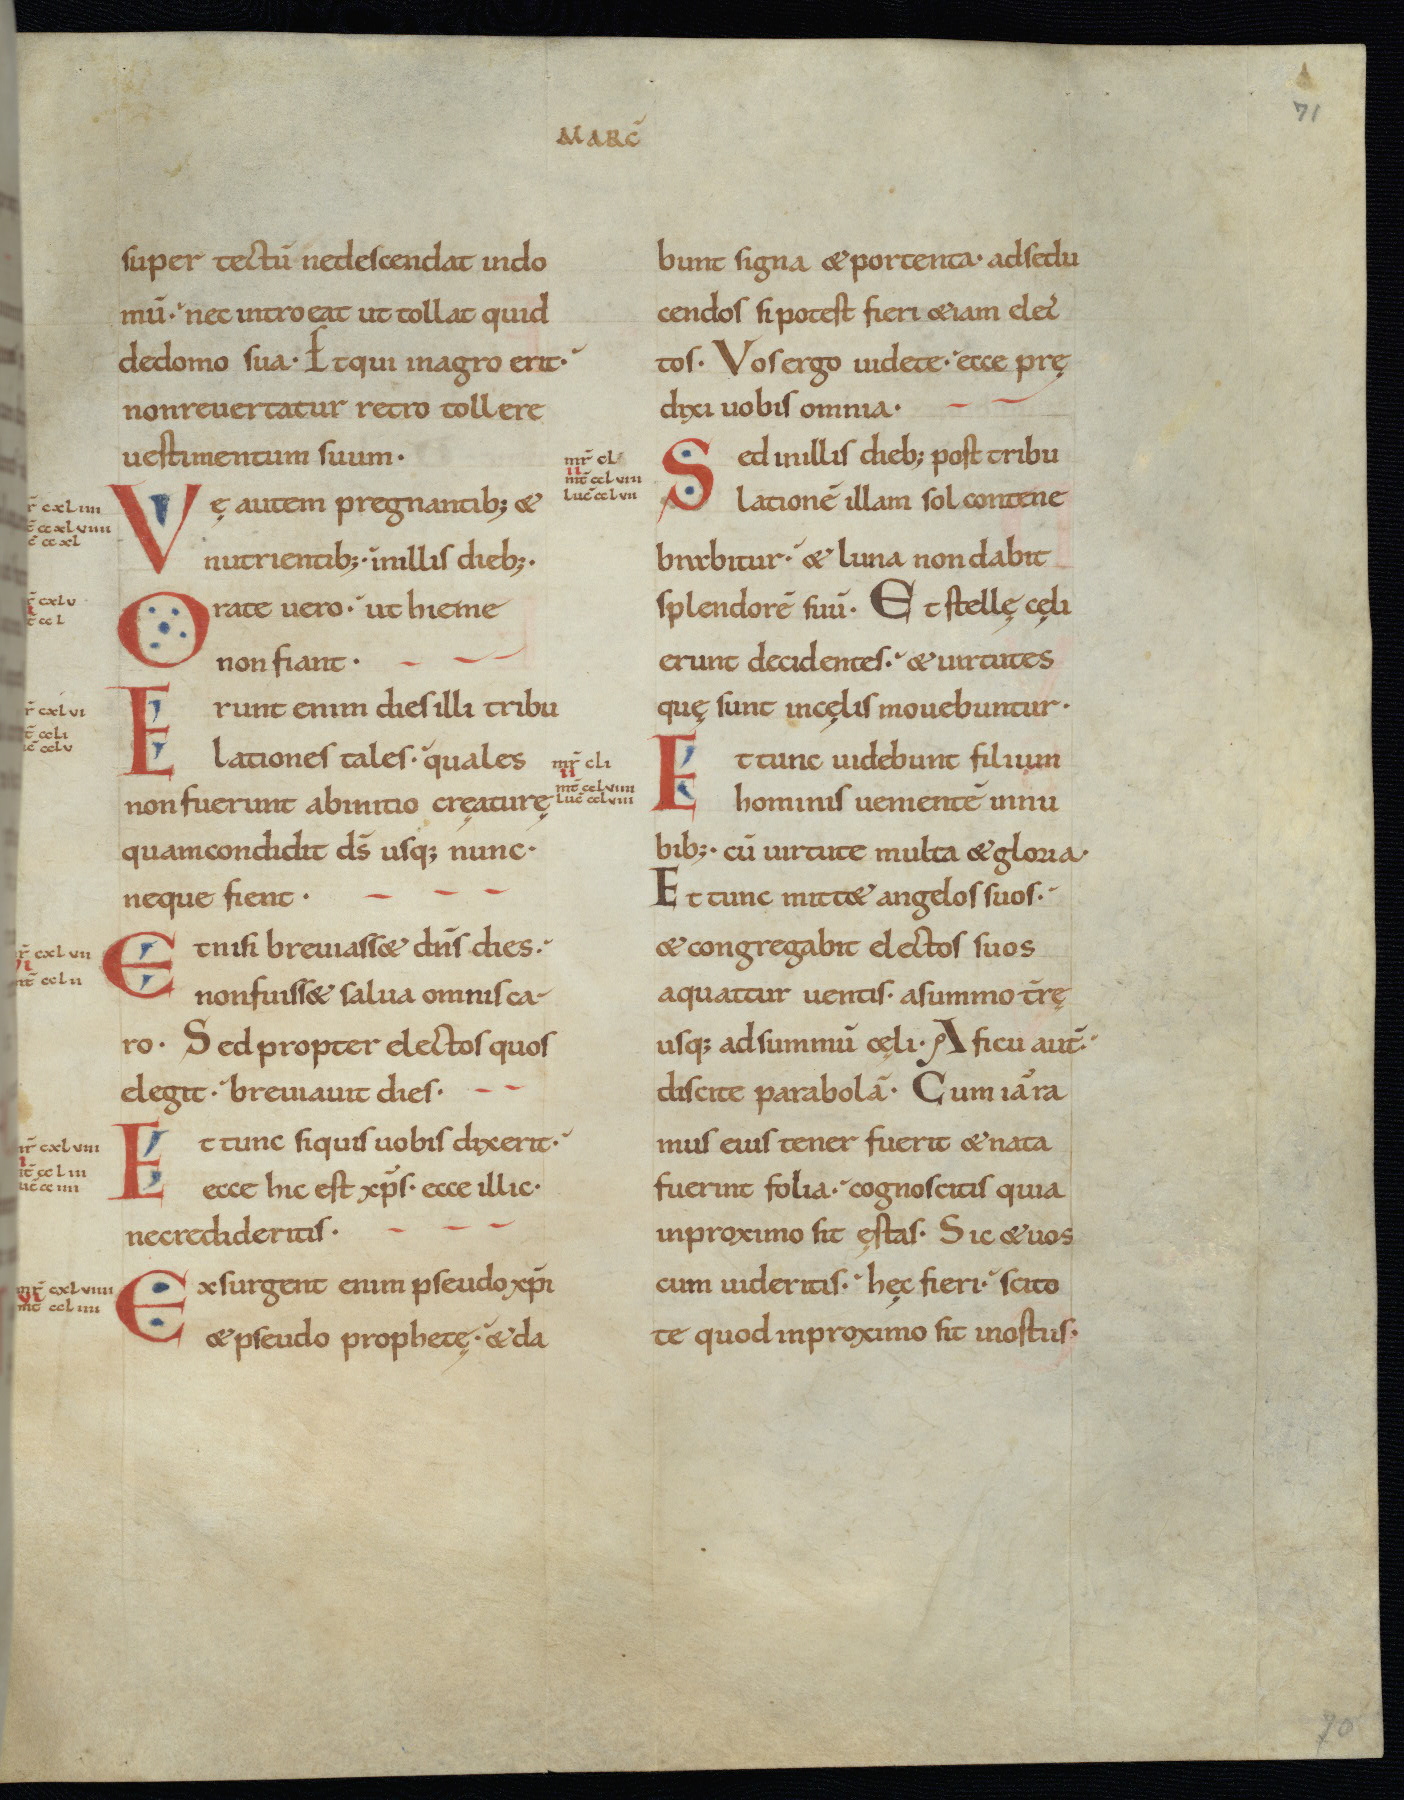 MARC̄
71
super tectū nedescendat indo
mū· nec introeat ut tollat quid
dedomo sua· Et qui inagro erit·
nonreuertatur retro tollere
uestimentum suum·
Vę autem pregnantib; &
nutrientib;· inillis dieb;·
Orate uero· ut hieme
non fiant·
Erunt enim dies illi tribu
lationes tales· quales
non fuerunt abinitio creaturę
quamcondidit ds̄ usq; nunc·
neque fient·
Et nisi breuiass& dn̄s dies·
nonfuiss& salua omnis ca-
ro· Sed propter electos quos
elegit· breuiauit dies·
Et tunc siquis uobis dixerit·
ecce hic est xp̄s· ecce illic·
necredideritis·
Exsurgent enim pseudo xp̄i
& pseudo prophetę· & da
mr̄ cl
ii
mt̄ cclviii
luc̄ cclvii
mr̄ cli
ii
mt̄ cclviiii
luc̄ cclviii
bunt signa & portenta· adsedu
cendos si potest fieri &iam elec
tos· Vos ergo uidete· ecce prę
dixi uobis omnia·
Sed inillis dieb; post tribu
lationē illam sol contene
brabitur· & luna non dabit
splendorē suū· Et stellę cęli
erunt decidentes· & uirtutes
quę sunt incęlis mouebuntur·
Et tunc uidebunt filium
hominis uenientē innu
bib;· cū uirtute multa & gloria·
Et tunc mitt& angelos suos·
& congregabit electos suos
aquattur uentis· asummo t̄rę
usq; adsummū cęli· A ficu aut̄·
discite parabolā· Cum iā ra
mus eius tener fuerit & nata
fuerint folia· cognoscitis quia
inproximo sit ęstas· Sic & uos
cum uideritis· hęc fieri· scito
te quod inproximo sit inostiis·
70